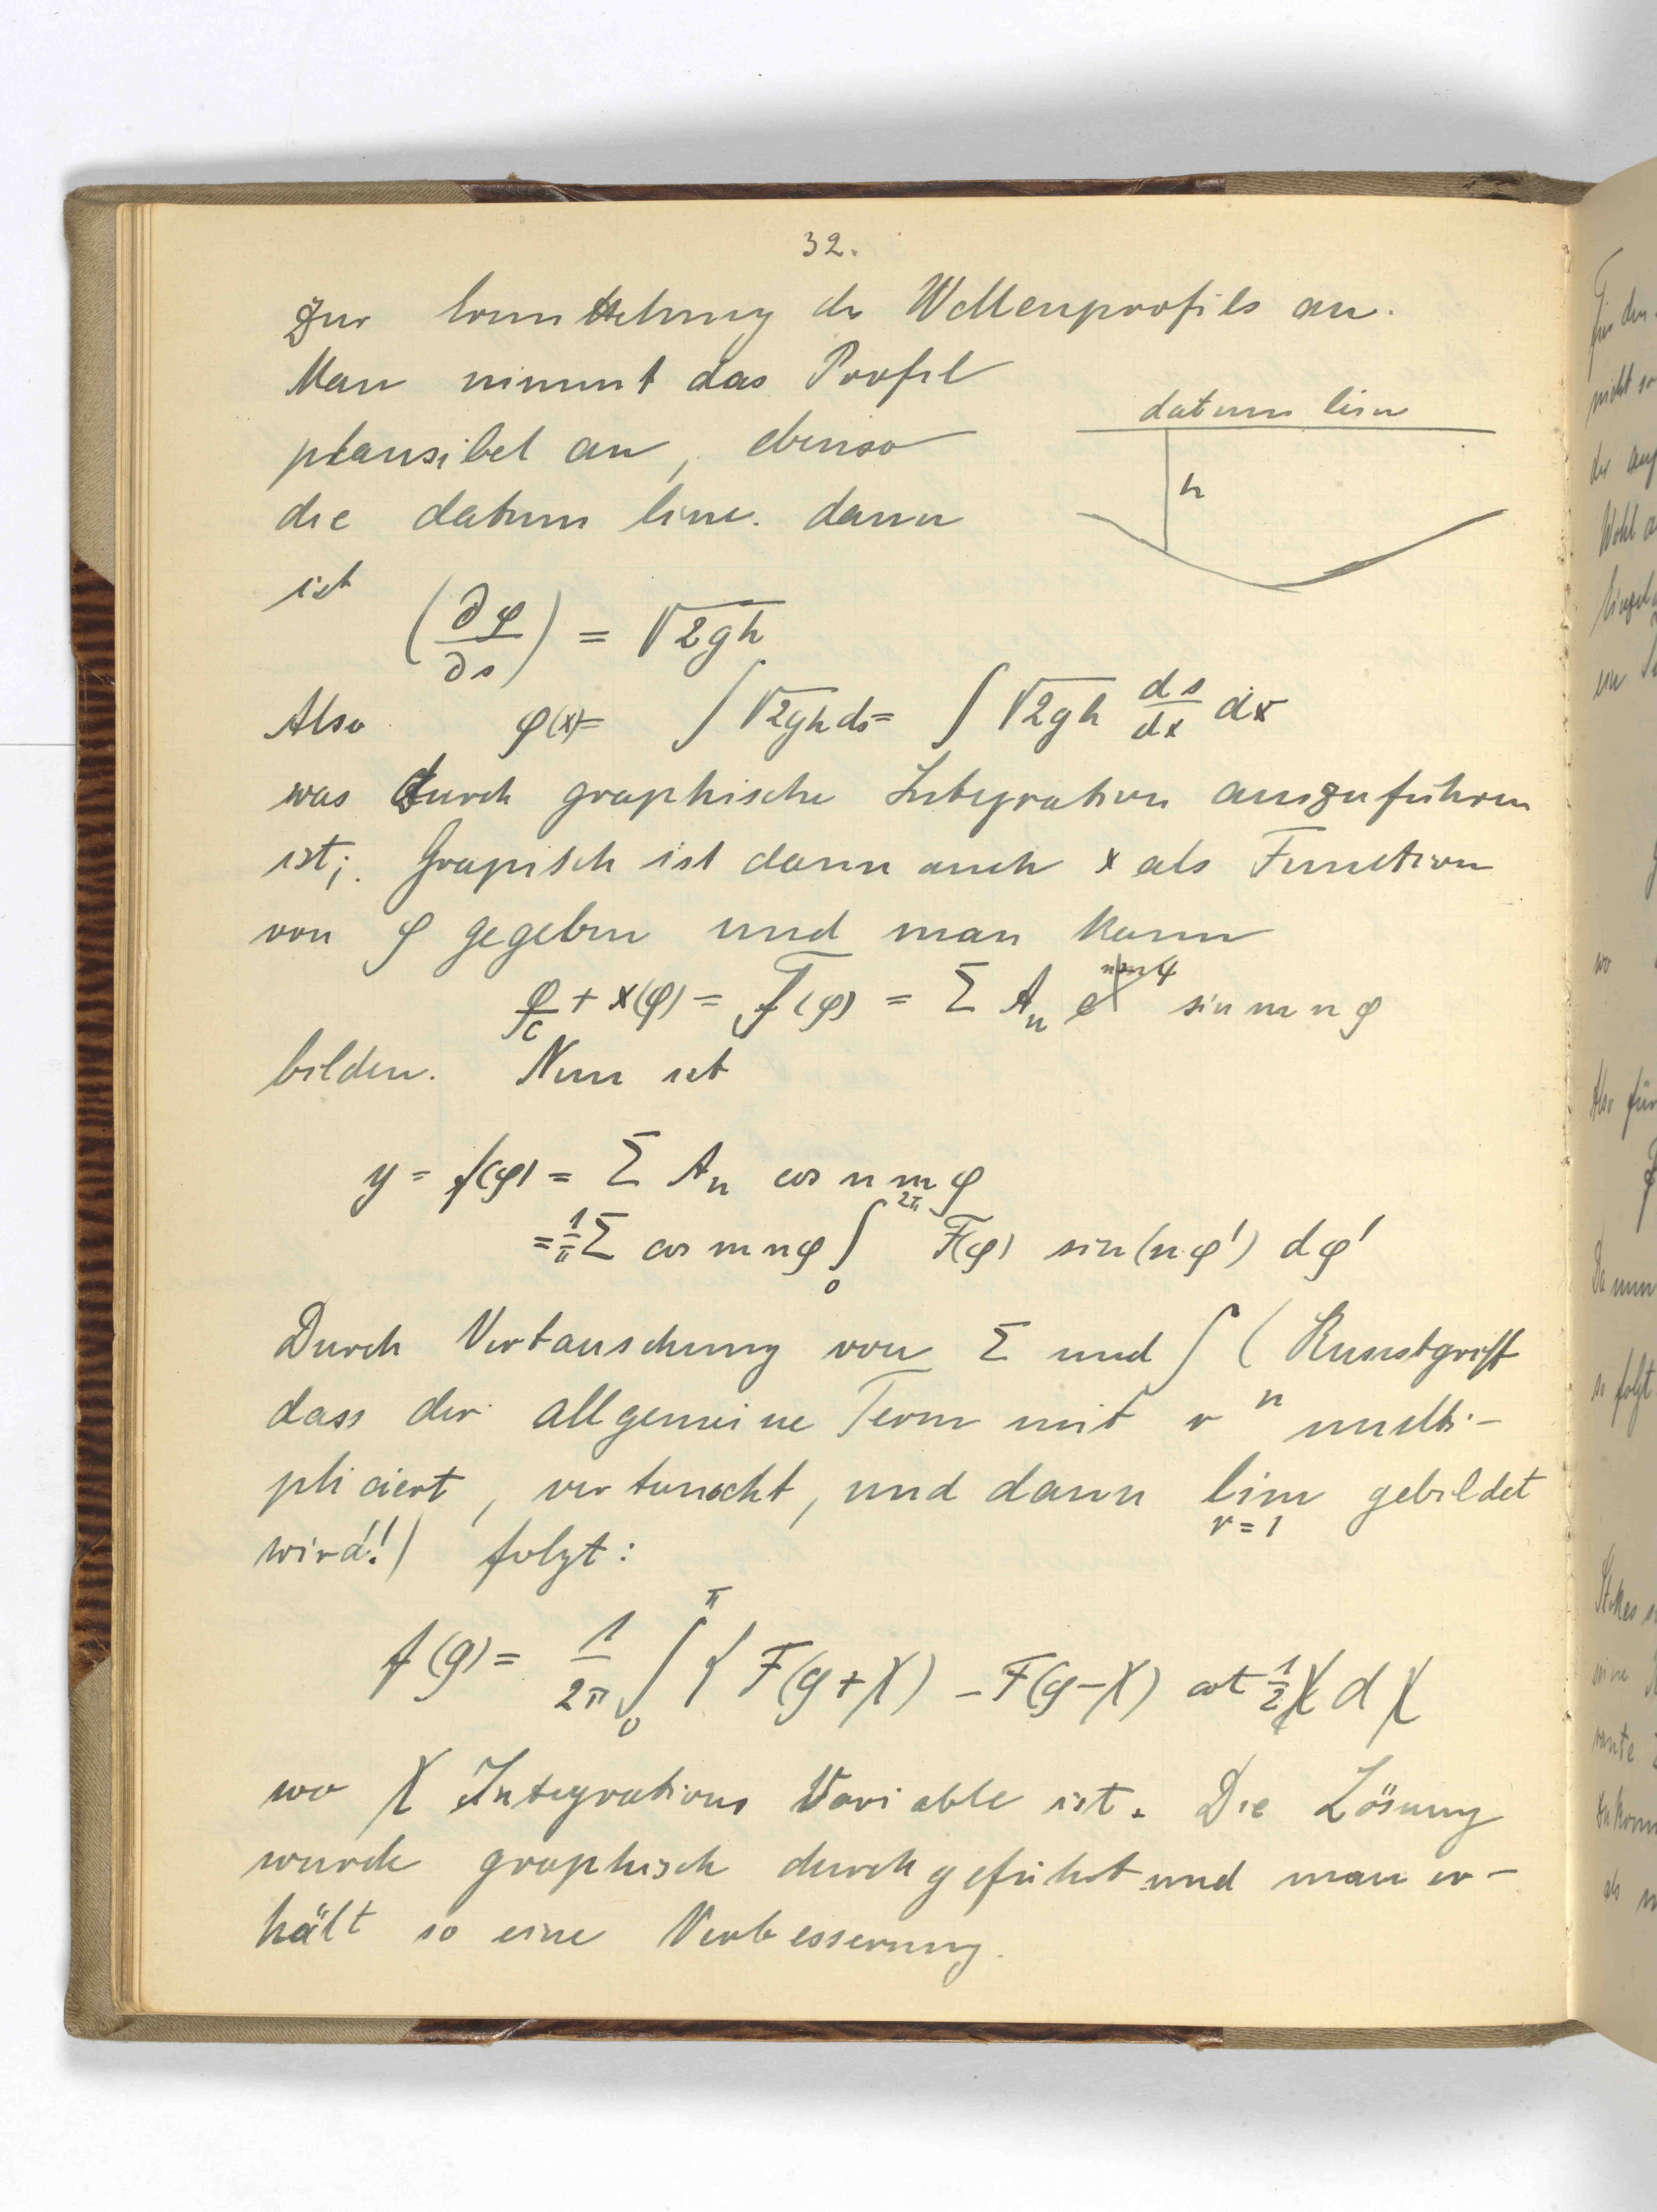 32.
Zur Ermittelung des Wellenprofils an.
Man nimmt das Profil
plausibel an, ebenso
die datum line. dann
datum line
h
ist (∂φ/∂s) = √2gh
Also φ(x) = ∫ √2gh ds = ∫ √2gh ds/dx dx
was durch graphische Integration auszuführen
ist; Grapisch ist dann auch x als Function
von φ gegeben und man kann
φ/c + x(φ) = F(φ) = Σ Aₙ sin m n φ
bilden. Nun ist
y = f(φ) = Σ Aₙ cos n m φ
= 1/π Σ cos m n φ ∫₀^2π F(φ) sin(n φ') dφ'
Durch Vertauschung von Σ und ∫ (Kunstgriff
dass der allgemeine Term mit rⁿ multi-
pliciert, vertauscht, und dann lim gebildet
r = 1
wird!) folgt:
f(φ) = 1/2π ∫₀^π { F(φ+χ) - F(φ-χ) cot 1/2 χ d χ
wo χ Integrations Variable ist. Die Lösung
wurde graphisch durchgeführt und man er-
hält so eine Verbesserung.